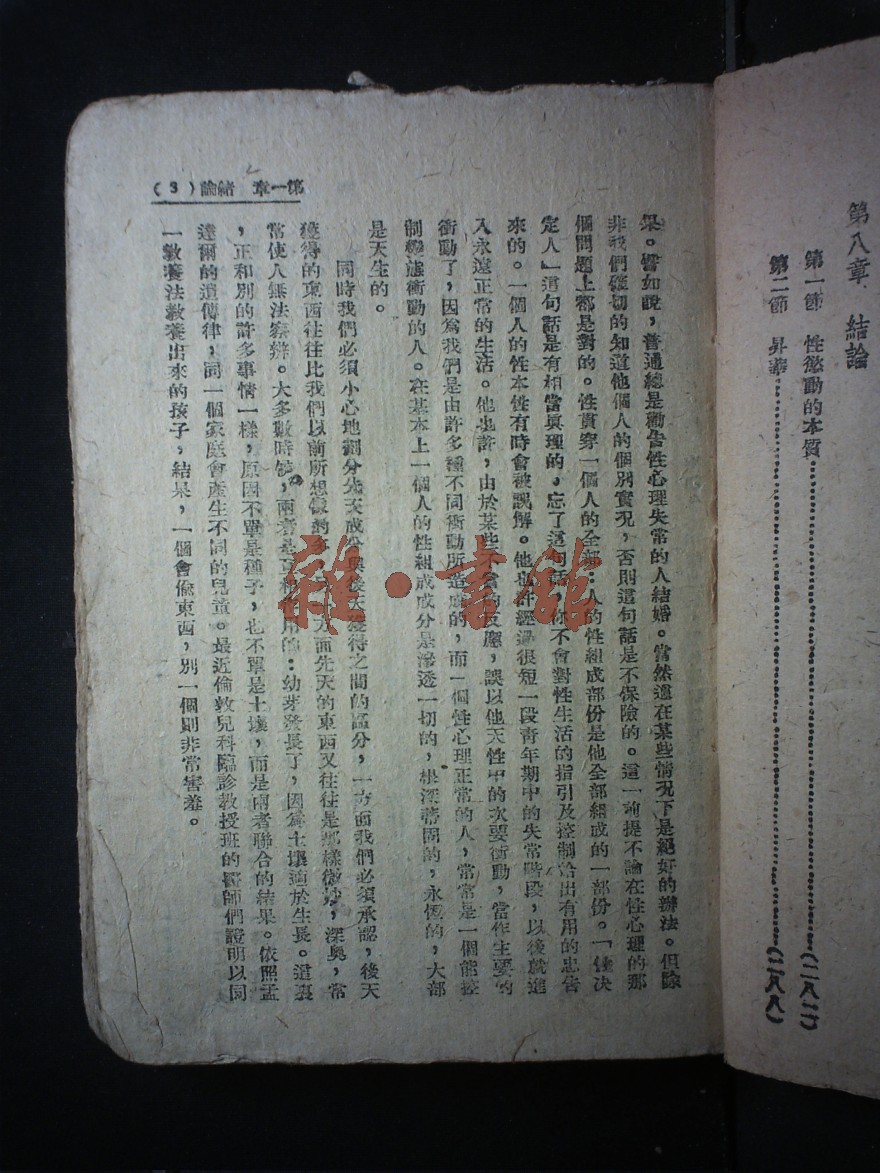 第八章 結論
第一節 性慾動的本質……(二八一)
第二節 昇華……(二八八)
第一章 緒論(3)
果。譬如說，普通總是勸告性心理失常的人結婚。當然這在某些情况下是絕好的辦法。但除
非我們確切的知道他個人的個別實况，否則這句話是不保險的。這一前提不論在性心理的那
個問題上都是對的。性貫穿一個人的全部：人的性組成部份是他全部組成的一部份。「性决
定人」這句話是有相當眞理的，忘了這句話，你不會對性生活的指引及控制給出有用的忠告
來的。一個人的性本性有時會被誤解。他也許經過很短一段青年期中的失常階段，以後就進
入永遠正常的生活。他也許，由於某些不 的反應，誤以他天性中的次要衝動，當作主要的
衝動了，因爲我們是由許多種不同衝動所造成的，而一個性心理正常的人，常常是一個能控
制變態衝動的人。在基本上一個人的性組成成分是滲透一切的，根深蒂固的，永恆的，大部
是天生的。
同時我們必須小心地劃分先天成份與後天獲得之間的區分，一方面我們必須承認，後天
獲得的東西往往比我們以前所想像的 ，另一方面先天的東西又往往是那樣微妙，深奧，常
常使人無法察辨。大多數時候，兩者是互相 用的：幼芽發長了，因爲土壤適於生長。這裏
，正和別的許多事情一樣，原因不單是種子，也不單是土壤，而是兩者聯合的結果。依照孟
達爾的遺傳律，同一個家庭會產生不同的兒童。最近倫敦兒科臨診教授班的醫師們證明以同
一教養法教養出來的孩子，結果，一個會偷東西，別一個則非常害羞。
雜·書館